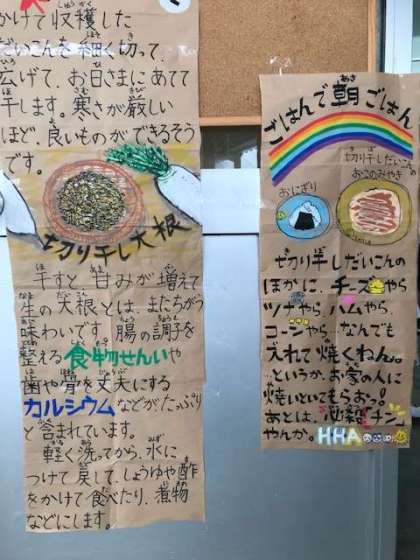 かけて収穫した
だいこんを細く切って、
広げて、お日さまにあてて
干します。寒さが厳しい
ほど、良いものができるそう
です。
切り干し大根
干すと、甘みが増えて
生の大根とは、またちがう
味わいです。腸の調子を
整える食物せんいや
歯や骨を丈夫にする
カルシウムなどがたっぷり
と含まれています。
軽く洗ってから、水に
つけて戻して、しょうゆや酢
をかけて食べたり、煮物
などにします。
ごはんで朝ごはん
切り干しだいこんの
おこのみやき
おにぎり
切り干しだいこんの
ほかに、チーズやら、
ツナやら、ハムやら、
コーンやら、なんでも
入れて焼くねん。
というか、お家の人に
焼いといてもらおっ。
あとは、池袋「チン」
やんか。HHA